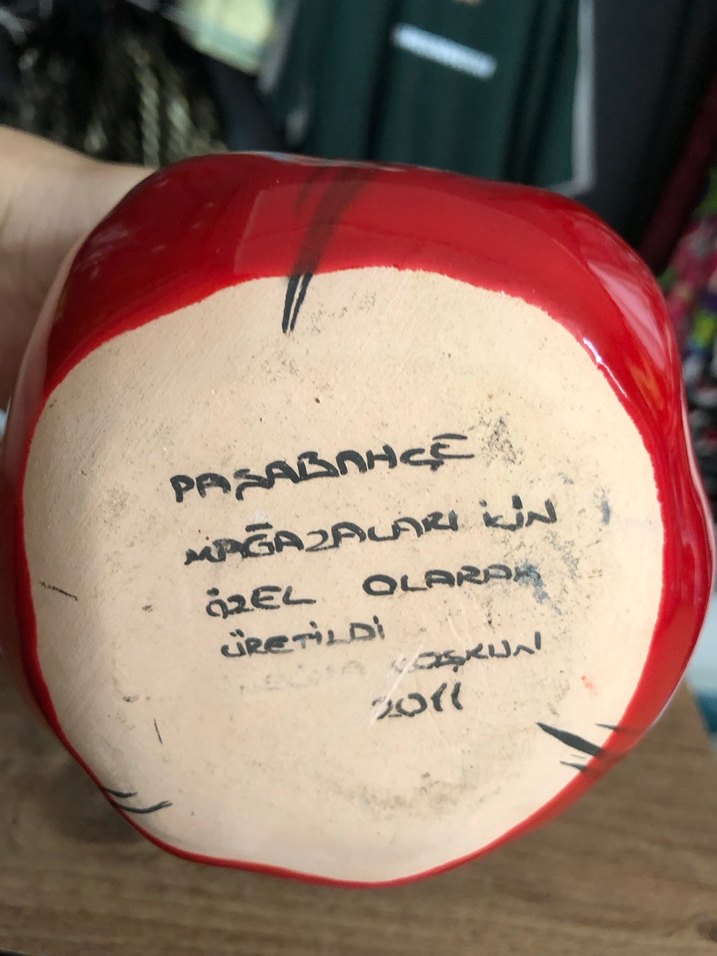 PAŞABAHÇE
MAĞAZALARI İÇİN
ÖZEL OLARAK
ÜRETİLDİ
COŞKUN
2011